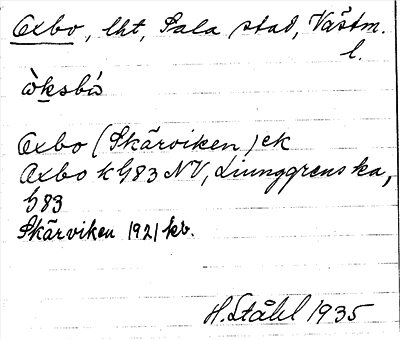 Oxbo, lht, Sala stad, Västm.
l.
òksbó
Oxbo (Skärviken) ek
Oxbo k G83 NV, Ljunggrens ka,
G83
Skärviken 1921 kb.
H. Ståhl 1935